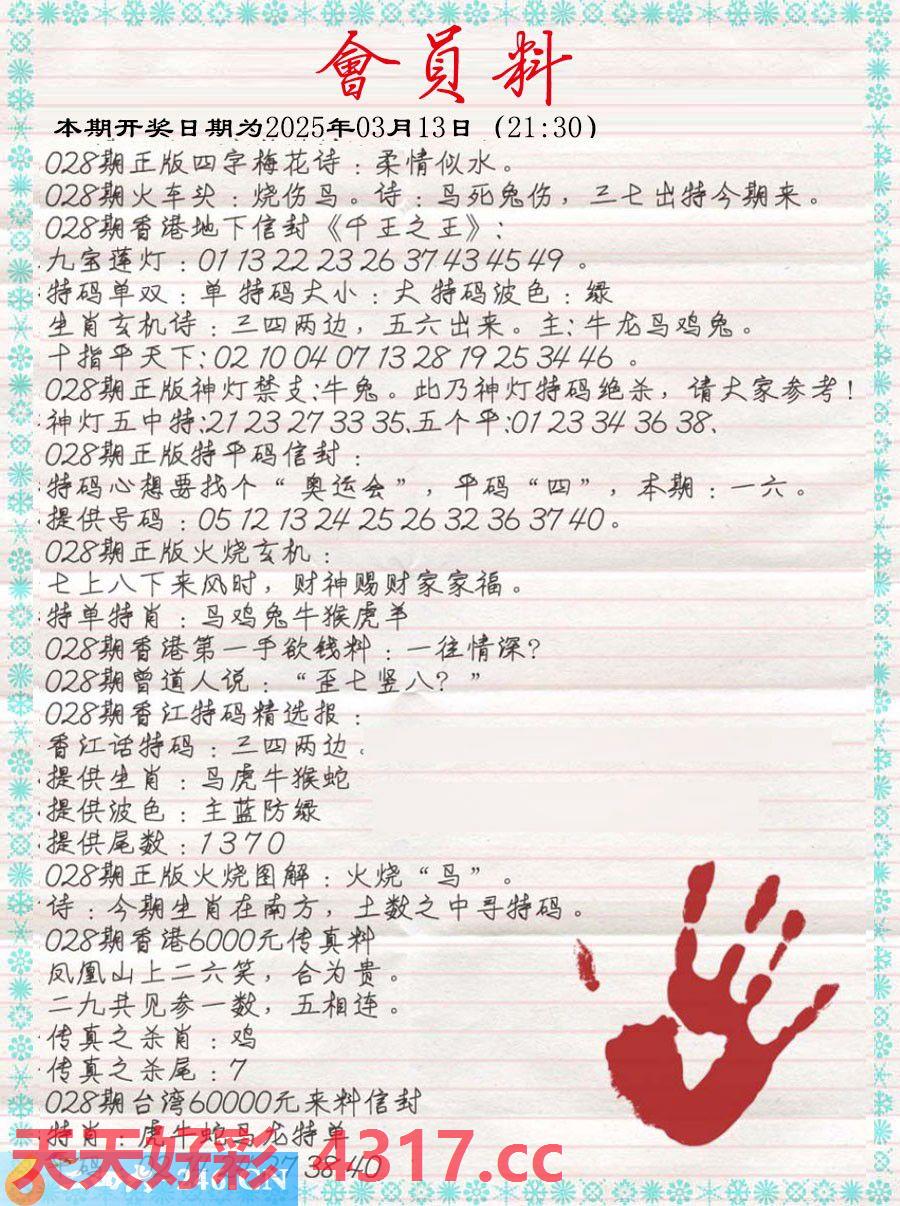 會員料
本期开奖日期为2025年03月13日（21:30）
028期正版四字梅花诗：柔情似水。
028期火车头：烧伤鸟。诗：鸟死兔伤，三七出特今期来。
028期香港地下信封《千王之王》：
九宝莲灯：01 13 22 23 26 37 43 45 49 。
特码单双：单 特码大小：大 特码波色：绿
生肖玄机诗：三四两边，五六出来。主：牛龙鸟鸡兔。
十指平天下：02 10 04 07 13 28 19 25 34 46 。
028期正版神灯禁支：牛兔。此乃神灯特码绝杀，请大家参考！
神灯五中特：21 23 27 33 35、五个平：01 23 34 36 38、
028期正版特平码信封：
特码心想要找个“ 奥运会”，平码“四”，本期：一六。
提供号码：05 12 13 24 25 26 32 36 37 40。
028期正版火烧玄机：
七上八下来风时，财神赐财家家福。
特单特肖：鸟鸡兔牛猴虎羊
028期香港第一手欲钱料：一往情深？
028期曾道人说：“歪七竖八？”
028期香江特码精选报：
香江话特码：三四两边。
提供生肖：鸟虎牛猴蛇
提供波色：主蓝防绿
提供尾数：1 3 7 0
028期正版火烧图解：火烧“鸟”。
诗：今期生肖在南方，土数之中寻特码。
028期香港6000元传真料
凤凰山上二六笑，合为贵。
二九共见参一数，五相连。
传真之杀肖：鸡
传真之杀尾：7
028期台湾60000元来料信封
特肖：虎牛蛇马龙特单
天天好彩 4317.cc
38 40